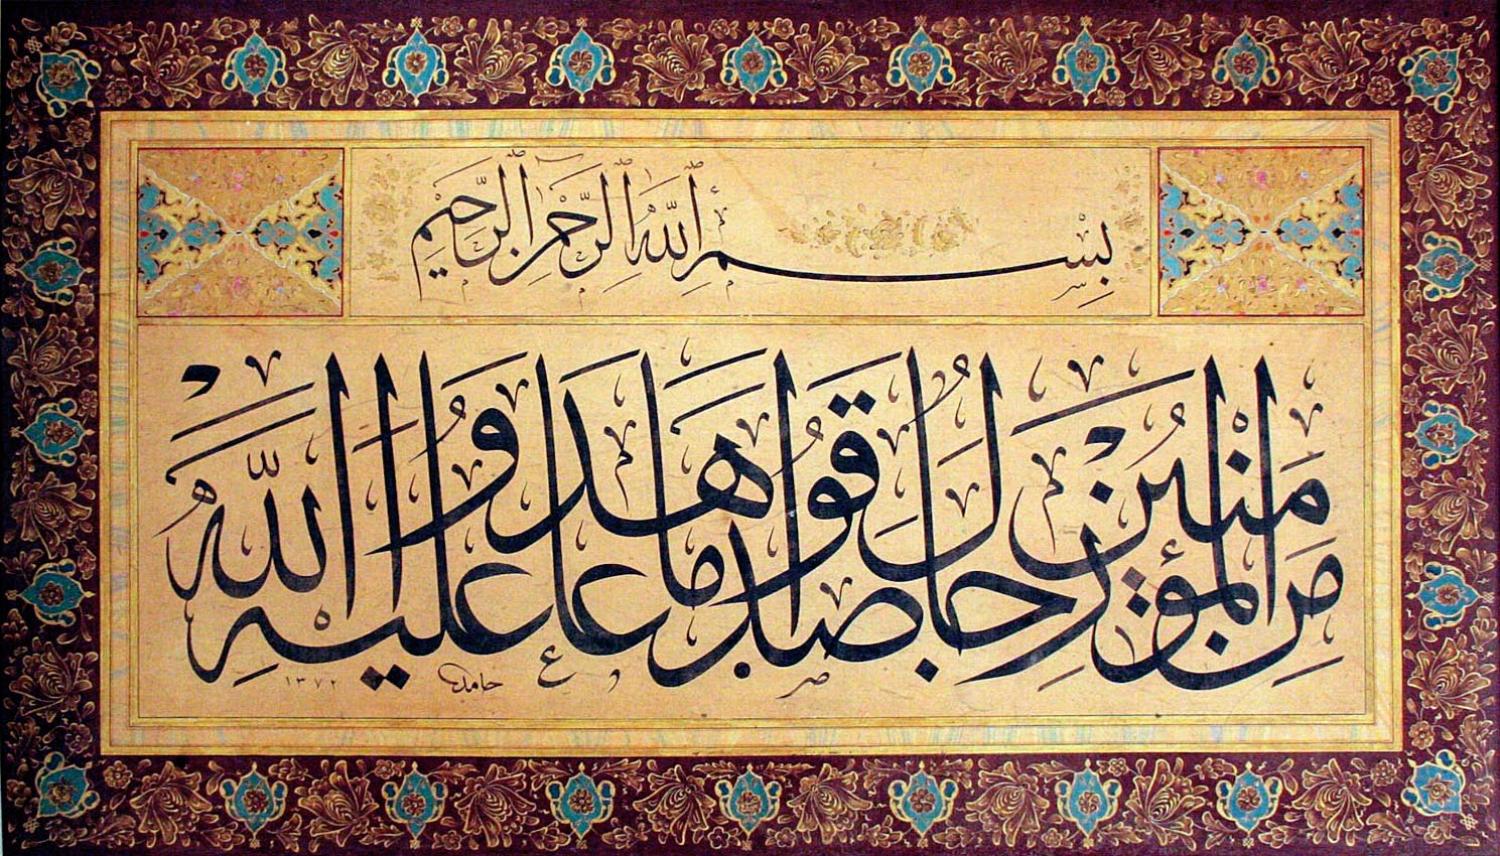 بِسْمِ اللهِ الرَّحْمٰنِ الرَّحِيمِ
مِنَ الْمُؤْمِنِينَ رِجَالٌ صَدَقُوا مَا عَاهَدُوا اللهَ عَلَيْهِ
حامد ١٣٧٢